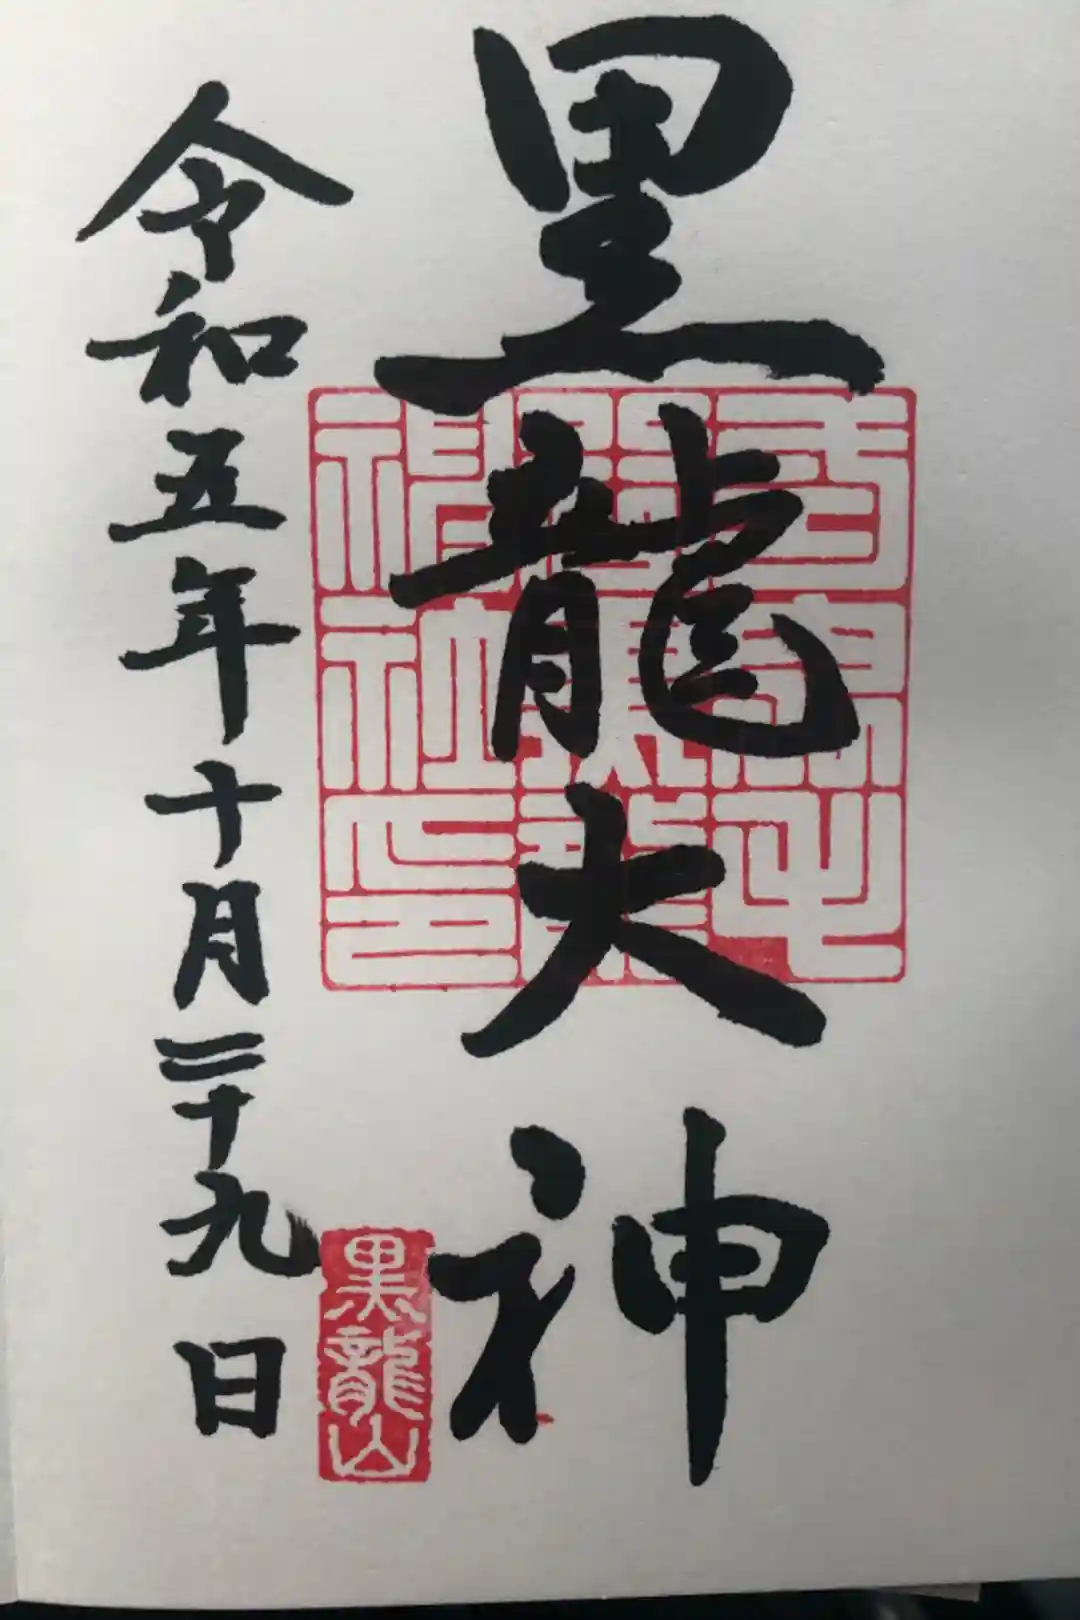 黒龍大神
令和五年十月二十九日
神社印
黒龍山